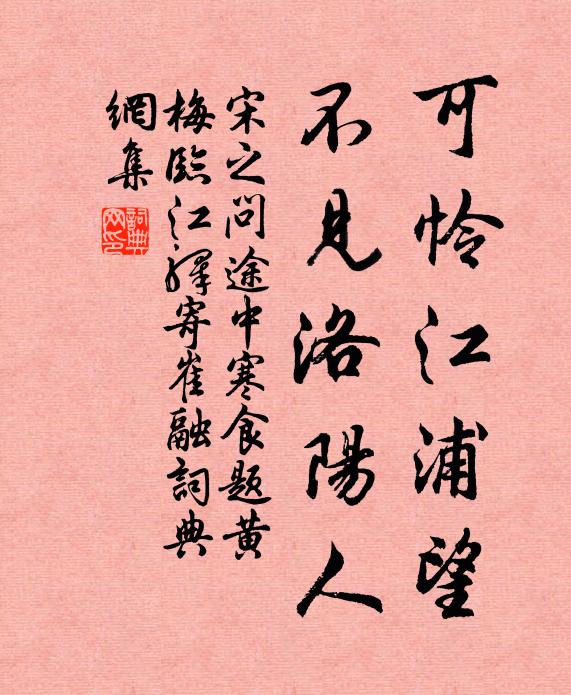 可怜江浦望
不見洛陽人
宋之問途中寒食题黄
梅臨江驛寄崔融詞典
網集
詞典
网印